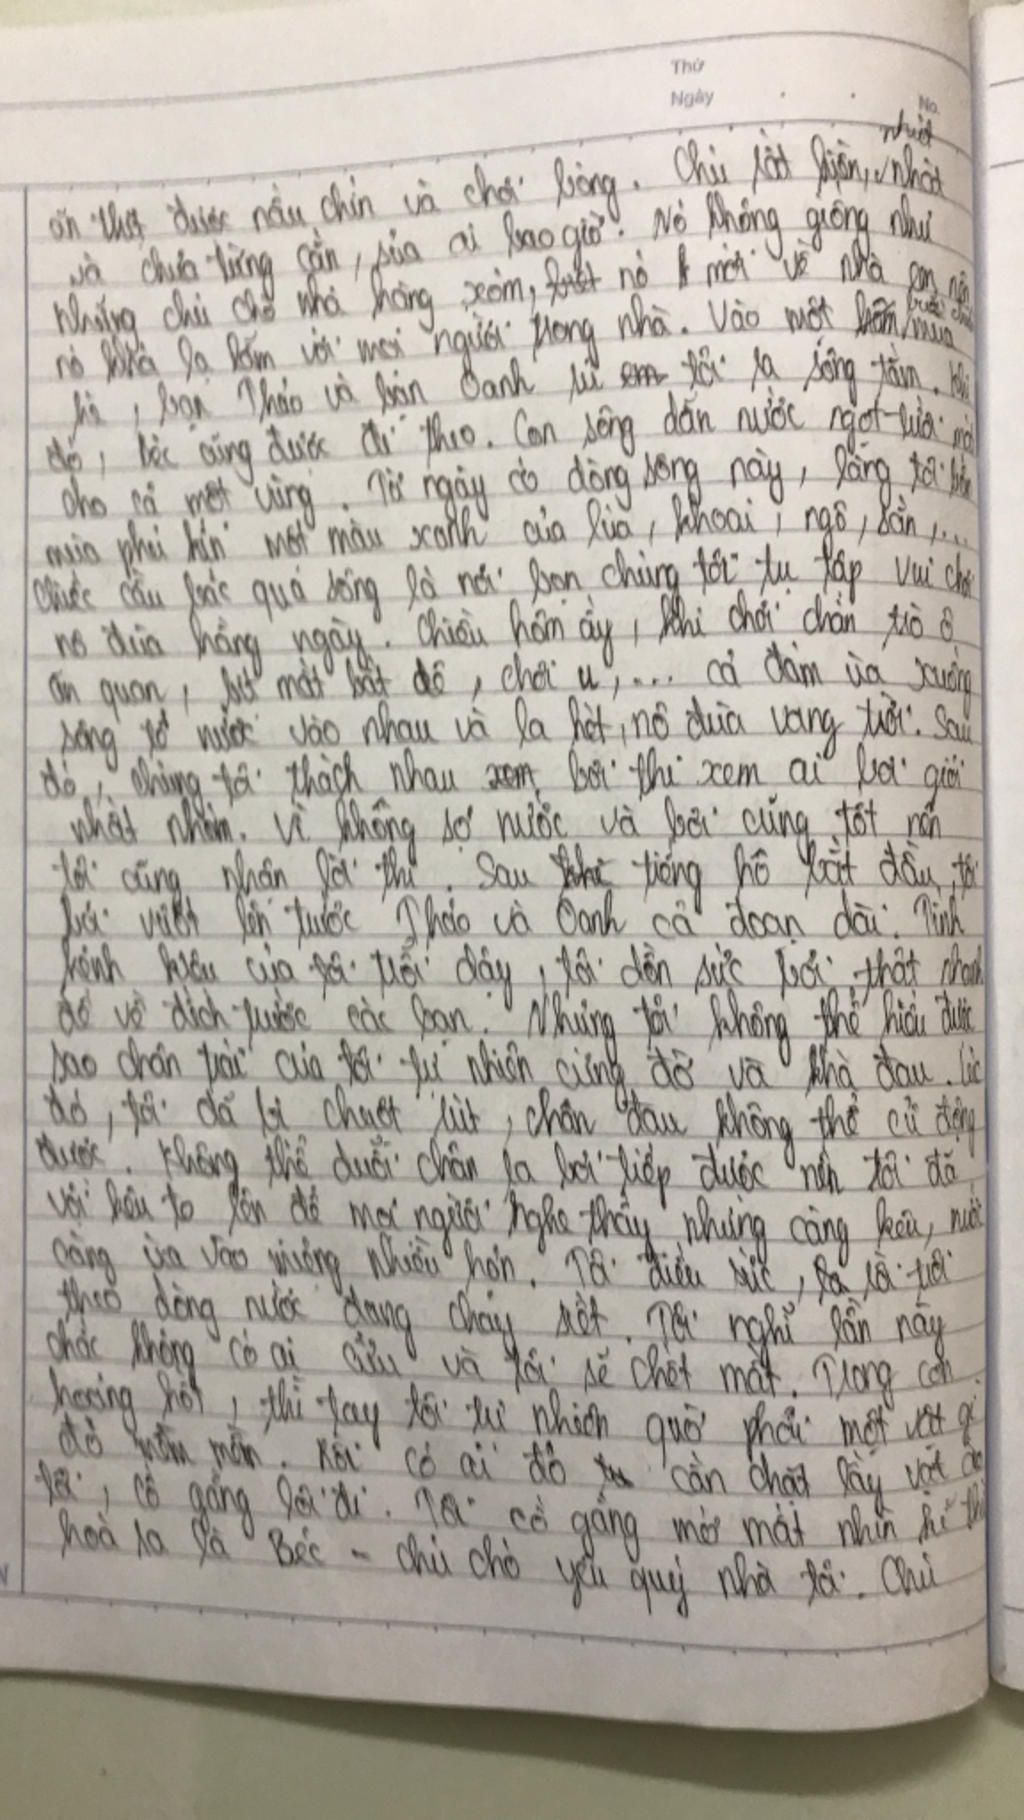 Thứ
Ngày
No.
nhút
ăn thịt được nấu chín và chơi bóng. Chú rất hiền, nhát
và chưa từng cắn, sủa ai bao giờ. Nó không giống như
những chú chó nhà hàng xóm, nó mới về nhà em nên
nó khá lạ lẫm với mọi người trong nhà. Vào một buổi chiều mùa
hè, bạn Thảo và bạn Oanh rủ tôi ra sông tắm. Khi
đó, Béc cũng được đi theo. Con sông dẫn nước ngọt tưới mát
cho cả một vùng. Từ ngày có dòng sông này, làng tôi bốn
mùa phủ kín một màu xanh của lúa, khoai, ngô, sắn,...
Chiếc cầu bắc qua sông là nơi bọn chúng tôi tụ tập vui chơi
nô đùa hằng ngày. Chiều hôm ấy, khi chơi chán trò ô
ăn quan, bịt mắt bắt dê, chơi u,... cả đám ùa xuống
sông té nước vào nhau và la hét, nô đùa vang trời. Sau
đó, chúng tôi thách nhau bơi thi xem ai bơi giỏi
nhất nhóm. Vì không sợ nước và bơi cũng tốt nên
tôi cũng nhận lời thi. Sau tiếng hô bắt đầu, tôi
bơi vượt lên trước Thảo và Oanh cả đoạn dài. Tính
kênh kiệu của tôi trỗi dậy, tôi dồn sức bơi thật nhanh
để về đích trước các bạn. Nhưng tôi không thể hiểu được
sao chân trái của tôi tự nhiên cứng đờ và khá đau. Lúc
đó, tôi đã bị chuột rút, chân đau không thể cử động
được. Không thể duỗi chân ra bơi tiếp được nên tôi đã
vội kêu to lên để mọi người nghe thấy nhưng càng kêu, nước
càng ùa vào miệng nhiều hơn. Tôi điếu sức, lả rồi trôi
theo dòng nước đang chảy xiết. Tôi nghĩ lần này
chắc không có ai cứu và tôi sẽ chết mất. Trong cơn
hoảng hốt, thì tay tôi tự nhiên quờ phải một vật gì
đó mềm mềm. Rồi có ai đó cắn chặt lấy vạt áo
tôi, cố gắng lôi đi. Tôi cố gắng mở mắt nhìn kĩ thì
hoá ra là Béc - chú chó yêu quý nhà tôi. Chú